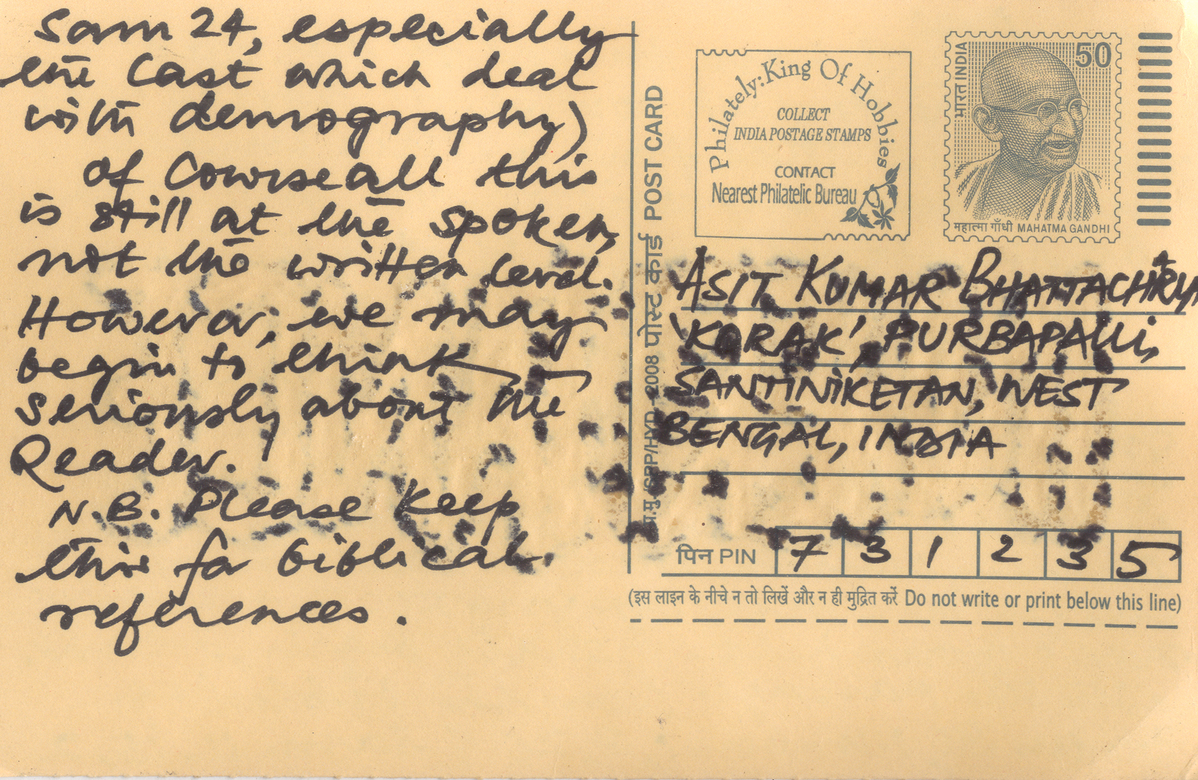 Sam 24, especially
the last which deal
with demography)
of course all this
is still at the spoken,
not the written level.
However, we may
begin to think
seriously about the
Reader.
N.B. Please keep
this for biblical
references.
अ.मु. SPP/HYD. 2008 पोस्ट कार्ड POST CARD
Philately: King Of Hobbies
COLLECT
INDIA POSTAGE STAMPS
CONTACT
Nearest Philatelic Bureau
भारत INDIA
50
महात्मा गाँधी MAHATMA GANDHI
ASIT KUMAR BHATTACHRYA
'KORAK', PURBAPALLI,
SANTINIKETAN, WEST
BENGAL, INDIA
पिन PIN 7 3 1 2 3 5
(इस लाइन के नीचे न तो लिखें और न ही मुद्रित करें Do not write or print below this line)